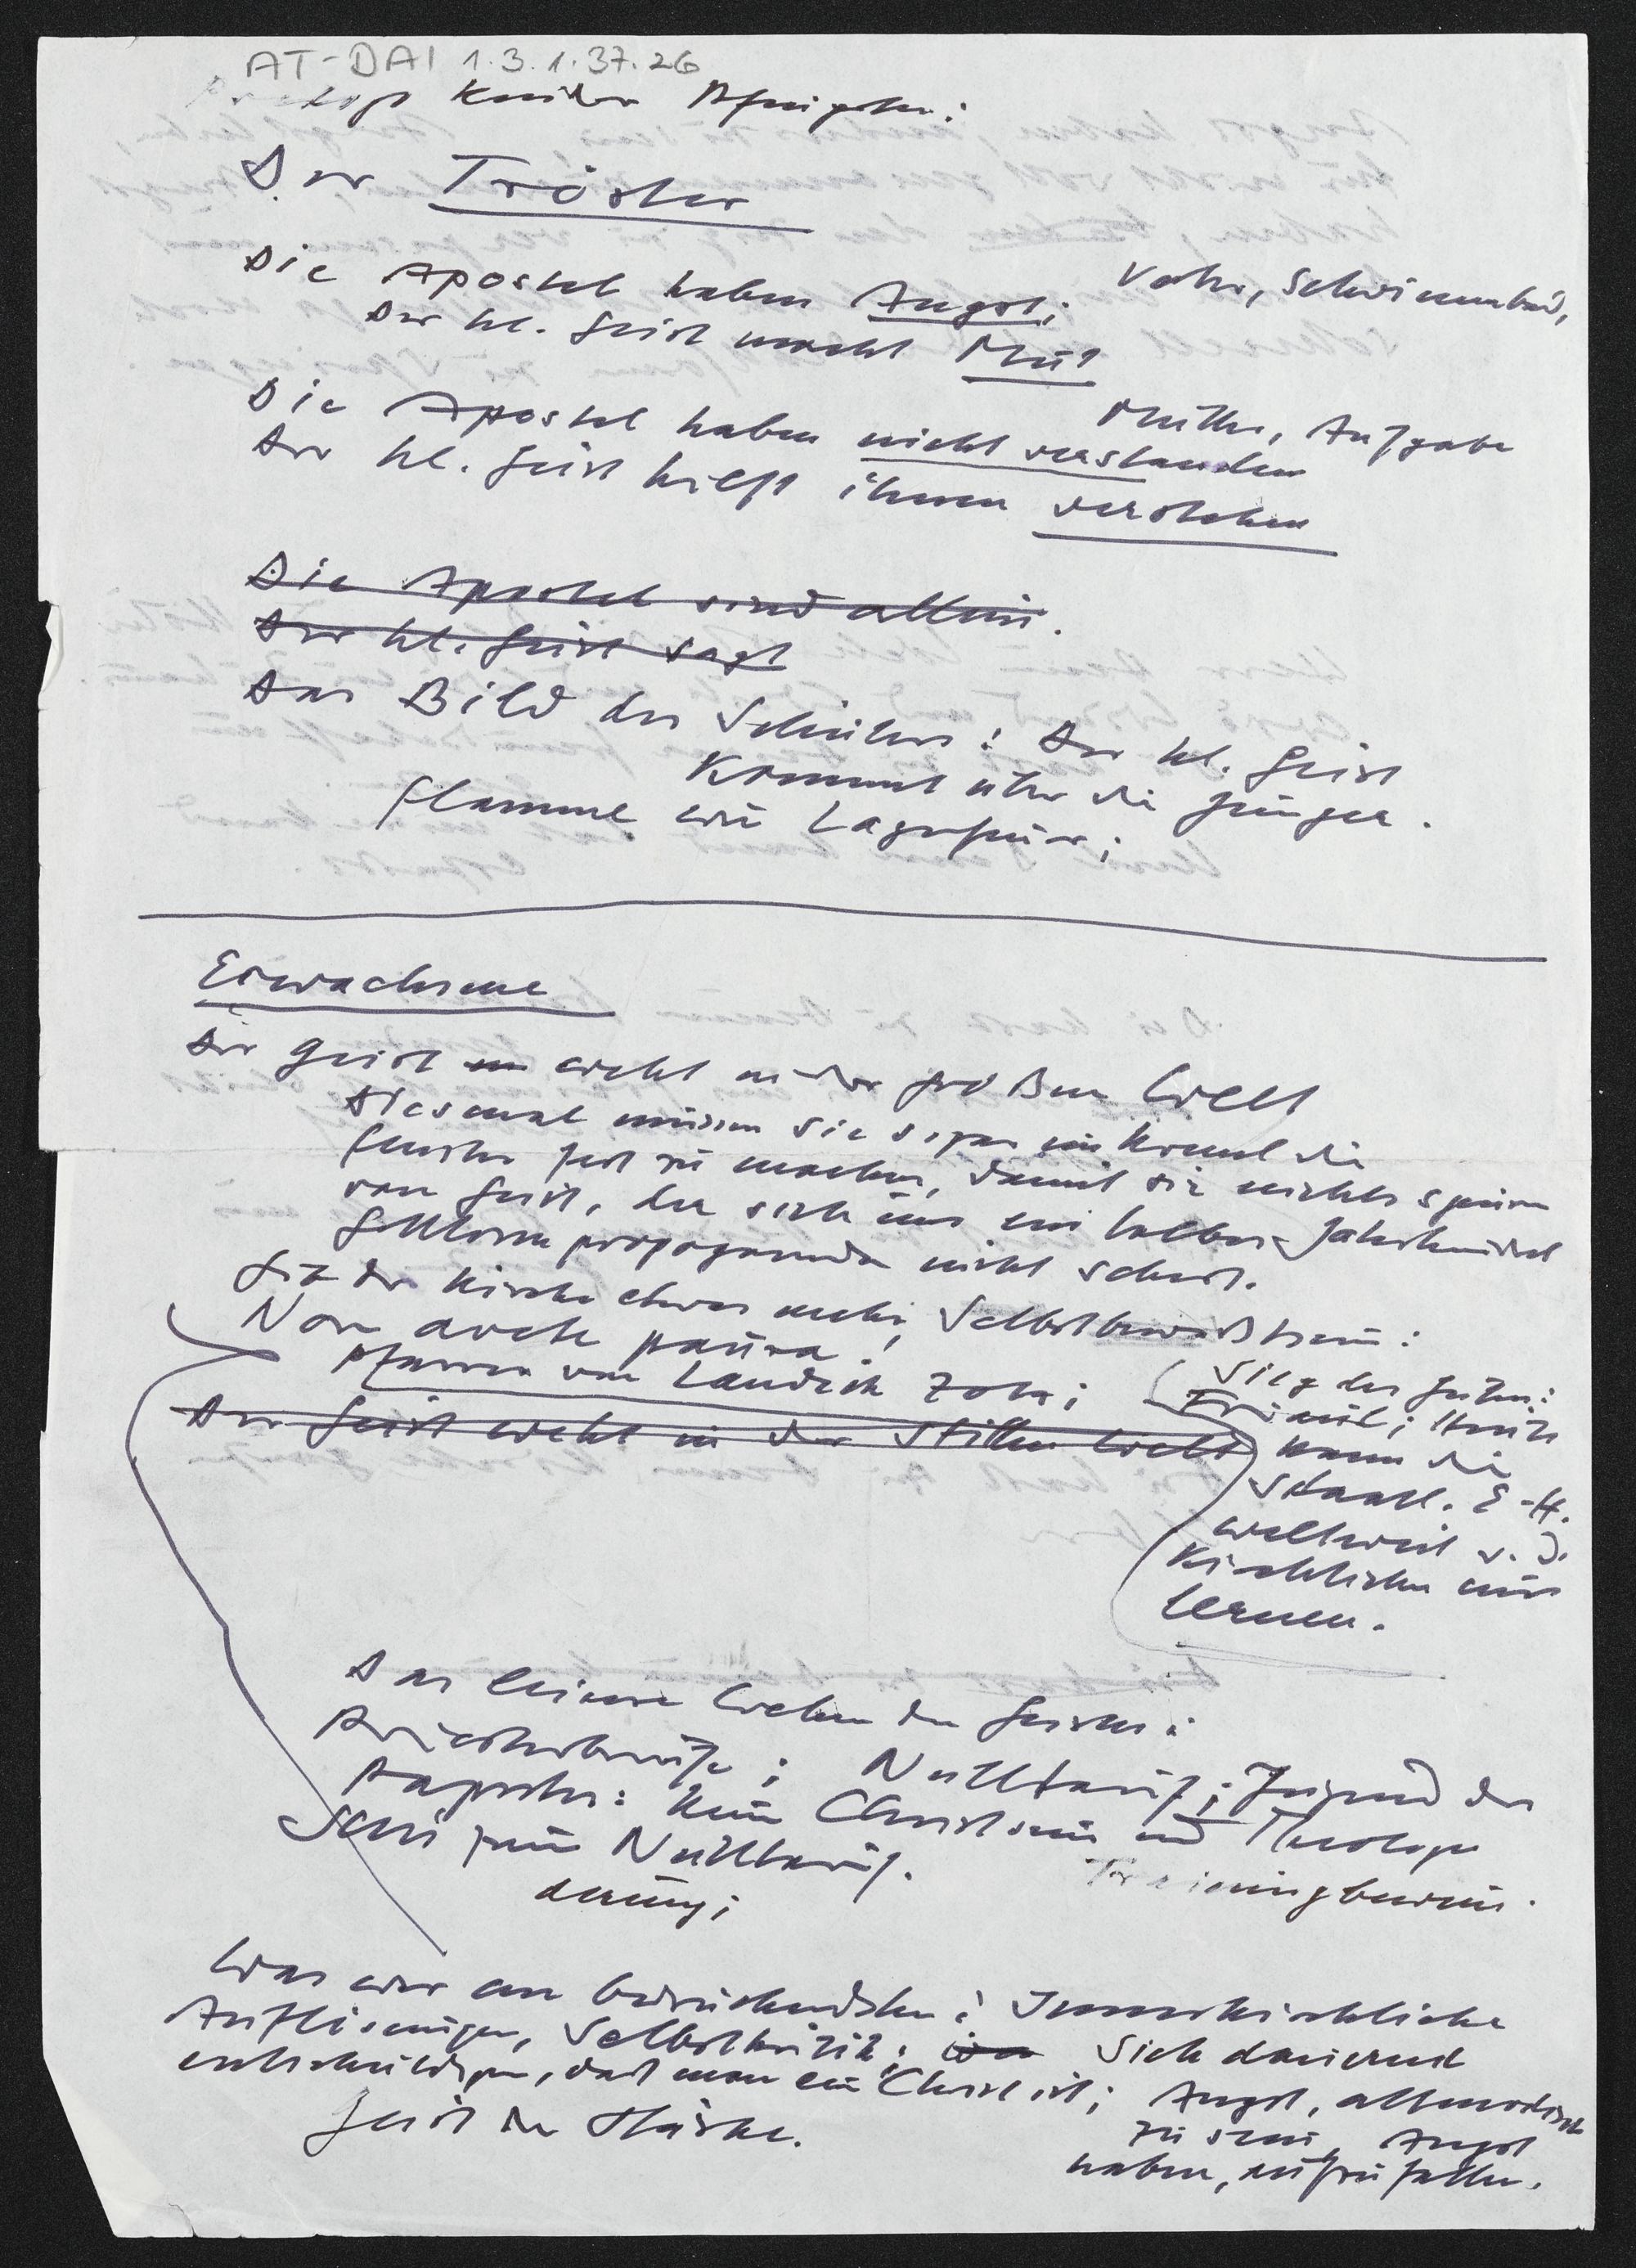 AT-DAI 1.3.1.37.26
Kinder Pfingsten:
Der Tröster
Die Apostel haben Angst; Vater, Schwimmbad,
Der hl. Geist macht Mut
Mutter, Aufgabe
Die Apostel haben nicht verstanden
Der hl. Geist hilft ihnen verstehen
Die Apostel sind allein.
Der hl. Geist sagt
Das Bild des Schülers: Der hl. Geist
kommt über die Jünger.
Flamme wie Lagerfeuer;
Erwachsene
Der Geist weht in der großen Welt
Diesmal müssen sie sogar im Kreml die
Fenster fest zu machen, damit sie nichts spüren
vom Geist, der sich um ein halbes Jahrhundert
Gottlosenpropaganda nicht schert.
Gib der Kirche etwas mehr Selbstbewußtsein:
Non avete paura!
Pfarrer von Landeck Zots;
Sieg des Guten:
Der Geist weht in der stillen Welt
Heute
kann die
Staatl. E-H.
weltweit v. d.
Kirchlichen nur
lernen.
Das leisere Wehen des Geistes:
Priesterberufe; Nulltarif; Jugend des
Papstes: Kein Christsein und Theologe
sein zum Nulltarif.
derung;
Was war am bedrückendsten: Innerkirchliche
Auflösungen, Selbstkritik; Sich dauernd
entschuldigen, daß man ein Christ ist; Angst, altmodisch
zu sein, Angst
haben, aufzufallen.
Geist der Stärke.